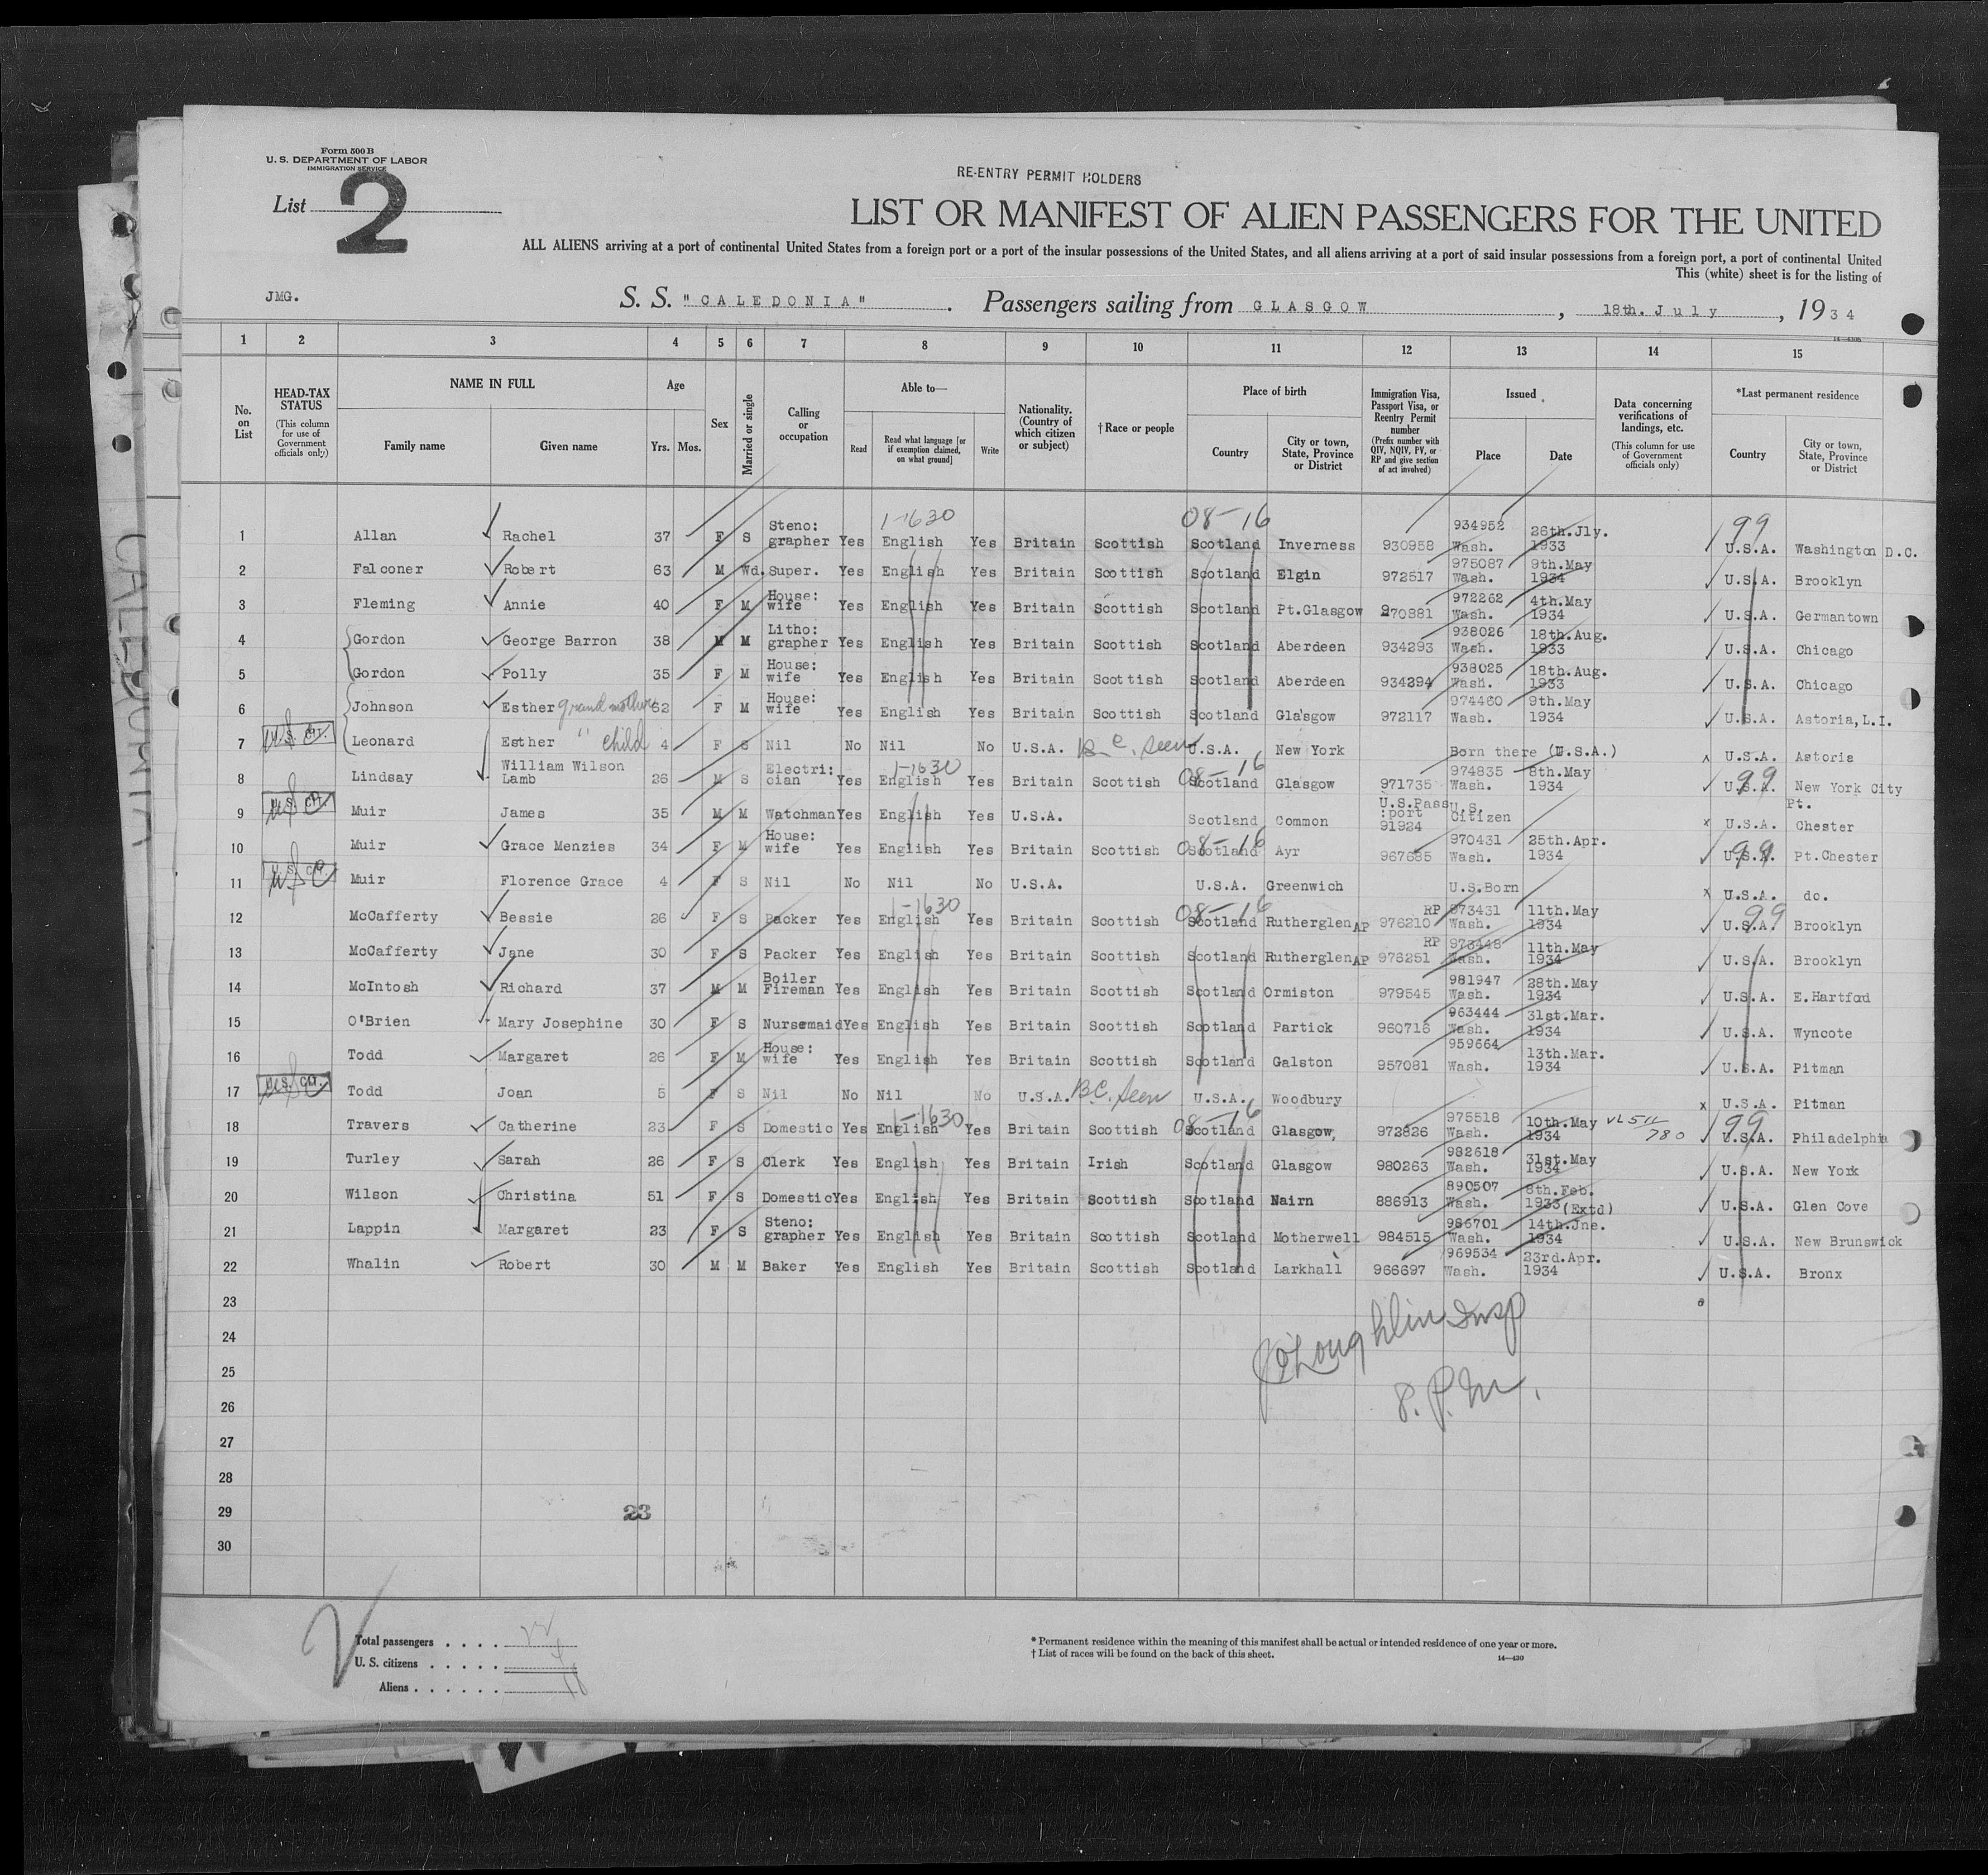 Form 500 B
U. S. DEPARTMENT OF LABOR
IMMIGRATION SERVICE
List 2
RE-ENTRY PERMIT HOLDERS
LIST OR MANIFEST OF ALIEN PASSENGERS FOR THE UNITED
ALL ALIENS arriving at a port of continental United States from a foreign port or a port of the insular possessions of the United States, and all aliens arriving at a port of said insular possessions from a foreign port, a port of continental United
This (white) sheet is for the listing of
JMG. S. S. "CALEDONIA" . Passengers sailing from GLASGOW , 18th. July , 1934
1 2 3 4 5 6 7 8 9 10 11 12 13 14 15
14-430B
No. on List
HEAD-TAX STATUS (This column for use of Government officials only)
NAME IN FULL
Family name Given name
Age Yrs. Mos.
Sex
Married or single
Calling or occupation
Able to—
Read Read what language [or if exemption claimed, on what ground] Write
Nationality. (Country of which citizen or subject)
† Race or people
Place of birth
Country City or town, State, Province or District
Immigration Visa, Passport Visa, or Reentry Permit number (Prefix number with QIV, NQIV, PV, or RP and give section of act involved)
Issued
Place Date
Data concerning verifications of landings, etc. (This column for use of Government officials only)
*Last permanent residence
Country City or town, State, Province or District
1-1630 08-16 99
1 Allan Rachel 37 F S Steno: grapher Yes English Yes Britain Scottish Scotland Inverness 930958 934952 Wash. 26th.Jly. 1933 U.S.A. Washington D.C.
2 Falconer Robert 63 M Wd. Super. Yes English Yes Britain Scottish Scotland Elgin 972517 975087 Wash. 9th.May 1934 U.S.A. Brooklyn
3 Fleming Annie 40 F M House: wife Yes English Yes Britain Scottish Scotland Pt.Glasgow 970881 972262 Wash. 4th.May 1934 U.S.A. Germantown
4 Gordon George Barron 38 M M Litho: grapher Yes English Yes Britain Scottish Scotland Aberdeen 934293 938026 Wash. 18th.Aug. 1933 U.S.A. Chicago
5 Gordon Polly 35 F M House: wife Yes English Yes Britain Scottish Scotland Aberdeen 934294 938025 Wash. 18th.Aug. 1933 U.S.A. Chicago
6 Johnson Esther grand mother 62 F M House: wife Yes English Yes Britain Scottish Scotland Glasgow 972117 974460 Wash. 9th.May 1934 U.S.A. Astoria, L.I.
7 U.S. CIT. Leonard Esther " child 4 F S Nil No Nil No U.S.A. B.C. seen U.S.A. New York Born there (U.S.A.) U.S.A. Astoria
8 Lindsay William Wilson Lamb 26 M S Electri: cian Yes 1-1630 English Yes Britain Scottish 08-16 Scotland Glasgow 971735 974835 Wash. 8th.May 1934 99 U.S.A. New York City
9 U.S. CIT. Muir James 35 M M Watchman Yes English Yes U.S.A. Scotland Common U.S.Pass :port 91924 U.S. Citizen U.S.A. Pt. Chester
10 Muir Grace Menzies 34 F M House: wife Yes English Yes Britain Scottish 08-16 Scotland Ayr 967685 970431 Wash. 25th.Apr. 1934 99 U.S.A. Pt.Chester
11 U.S. CIT. Muir Florence Grace 4 F S Nil No Nil No U.S.A. U.S.A. Greenwich U.S.Born U.S.A. do.
12 McCafferty Bessie 26 F S Packer Yes 1-1630 English Yes Britain Scottish 08-16 Scotland Rutherglen AP 976210 RP 973431 Wash. 11th.May 1934 99 U.S.A. Brooklyn
13 McCafferty Jane 30 F S Packer Yes English Yes Britain Scottish Scotland Rutherglen AP 976251 RP 973448 Wash. 11th.May 1934 U.S.A. Brooklyn
14 McIntosh Richard 37 M M Boiler Fireman Yes English Yes Britain Scottish Scotland Ormiston 979545 981947 Wash. 28th.May 1934 U.S.A. E.Hartford
15 O'Brien Mary Josephine 30 F S Nursemaid Yes English Yes Britain Scottish Scotland Partick 960716 963444 Wash. 31st.Mar. 1934 U.S.A. Wyncote
16 Todd Margaret 26 F M House: wife Yes English Yes Britain Scottish Scotland Galston 957081 959664 Wash. 13th.Mar. 1934 U.S.A. Pitman
17 U.S. CIT. Todd Joan 5 F S Nil No Nil No U.S.A. B.C. seen U.S.A. Woodbury U.S.A. Pitman
18 Travers Catherine 23 F S Domestic Yes 1-1630 English Yes Britain Scottish 08-16 Scotland Glasgow, 972826 975518 Wash. 10th.May 1934 780 99 U.S.A. Philadelphia
19 Turley Sarah 26 F S Clerk Yes English Yes Britain Irish Scotland Glasgow 980263 982618 Wash. 31st.May 1934 U.S.A. New York
20 Wilson Christina 51 F S Domestic Yes English Yes Britain Scottish Scotland Nairn 886913 890507 Wash. 8th.Feb. 1933 (Extd) U.S.A. Glen Cove
21 Lappin Margaret 23 F S Steno: grapher Yes English Yes Britain Scottish Scotland Motherwell 984515 986701 Wash. 14th.Jne. 1934 U.S.A. New Brunswick
22 Whalin Robert 30 M M Baker Yes English Yes Britain Scottish Scotland Larkhall 966697 969534 Wash. 23rd.Apr. 1934 U.S.A. Bronx
23
24 O'Loughlin Insp
25
26 S.P.M.
27
28
29 23
30
Total passengers . . . . 22
U. S. citizens . . . . . 4
Aliens . . . . . . 18
* Permanent residence within the meaning of this manifest shall be actual or intended residence of one year or more.
† List of races will be found on the back of this sheet.
14—430
CALEDONIA